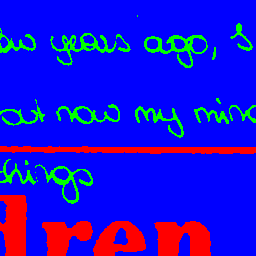 years ago, I
but now my mind
things
dren